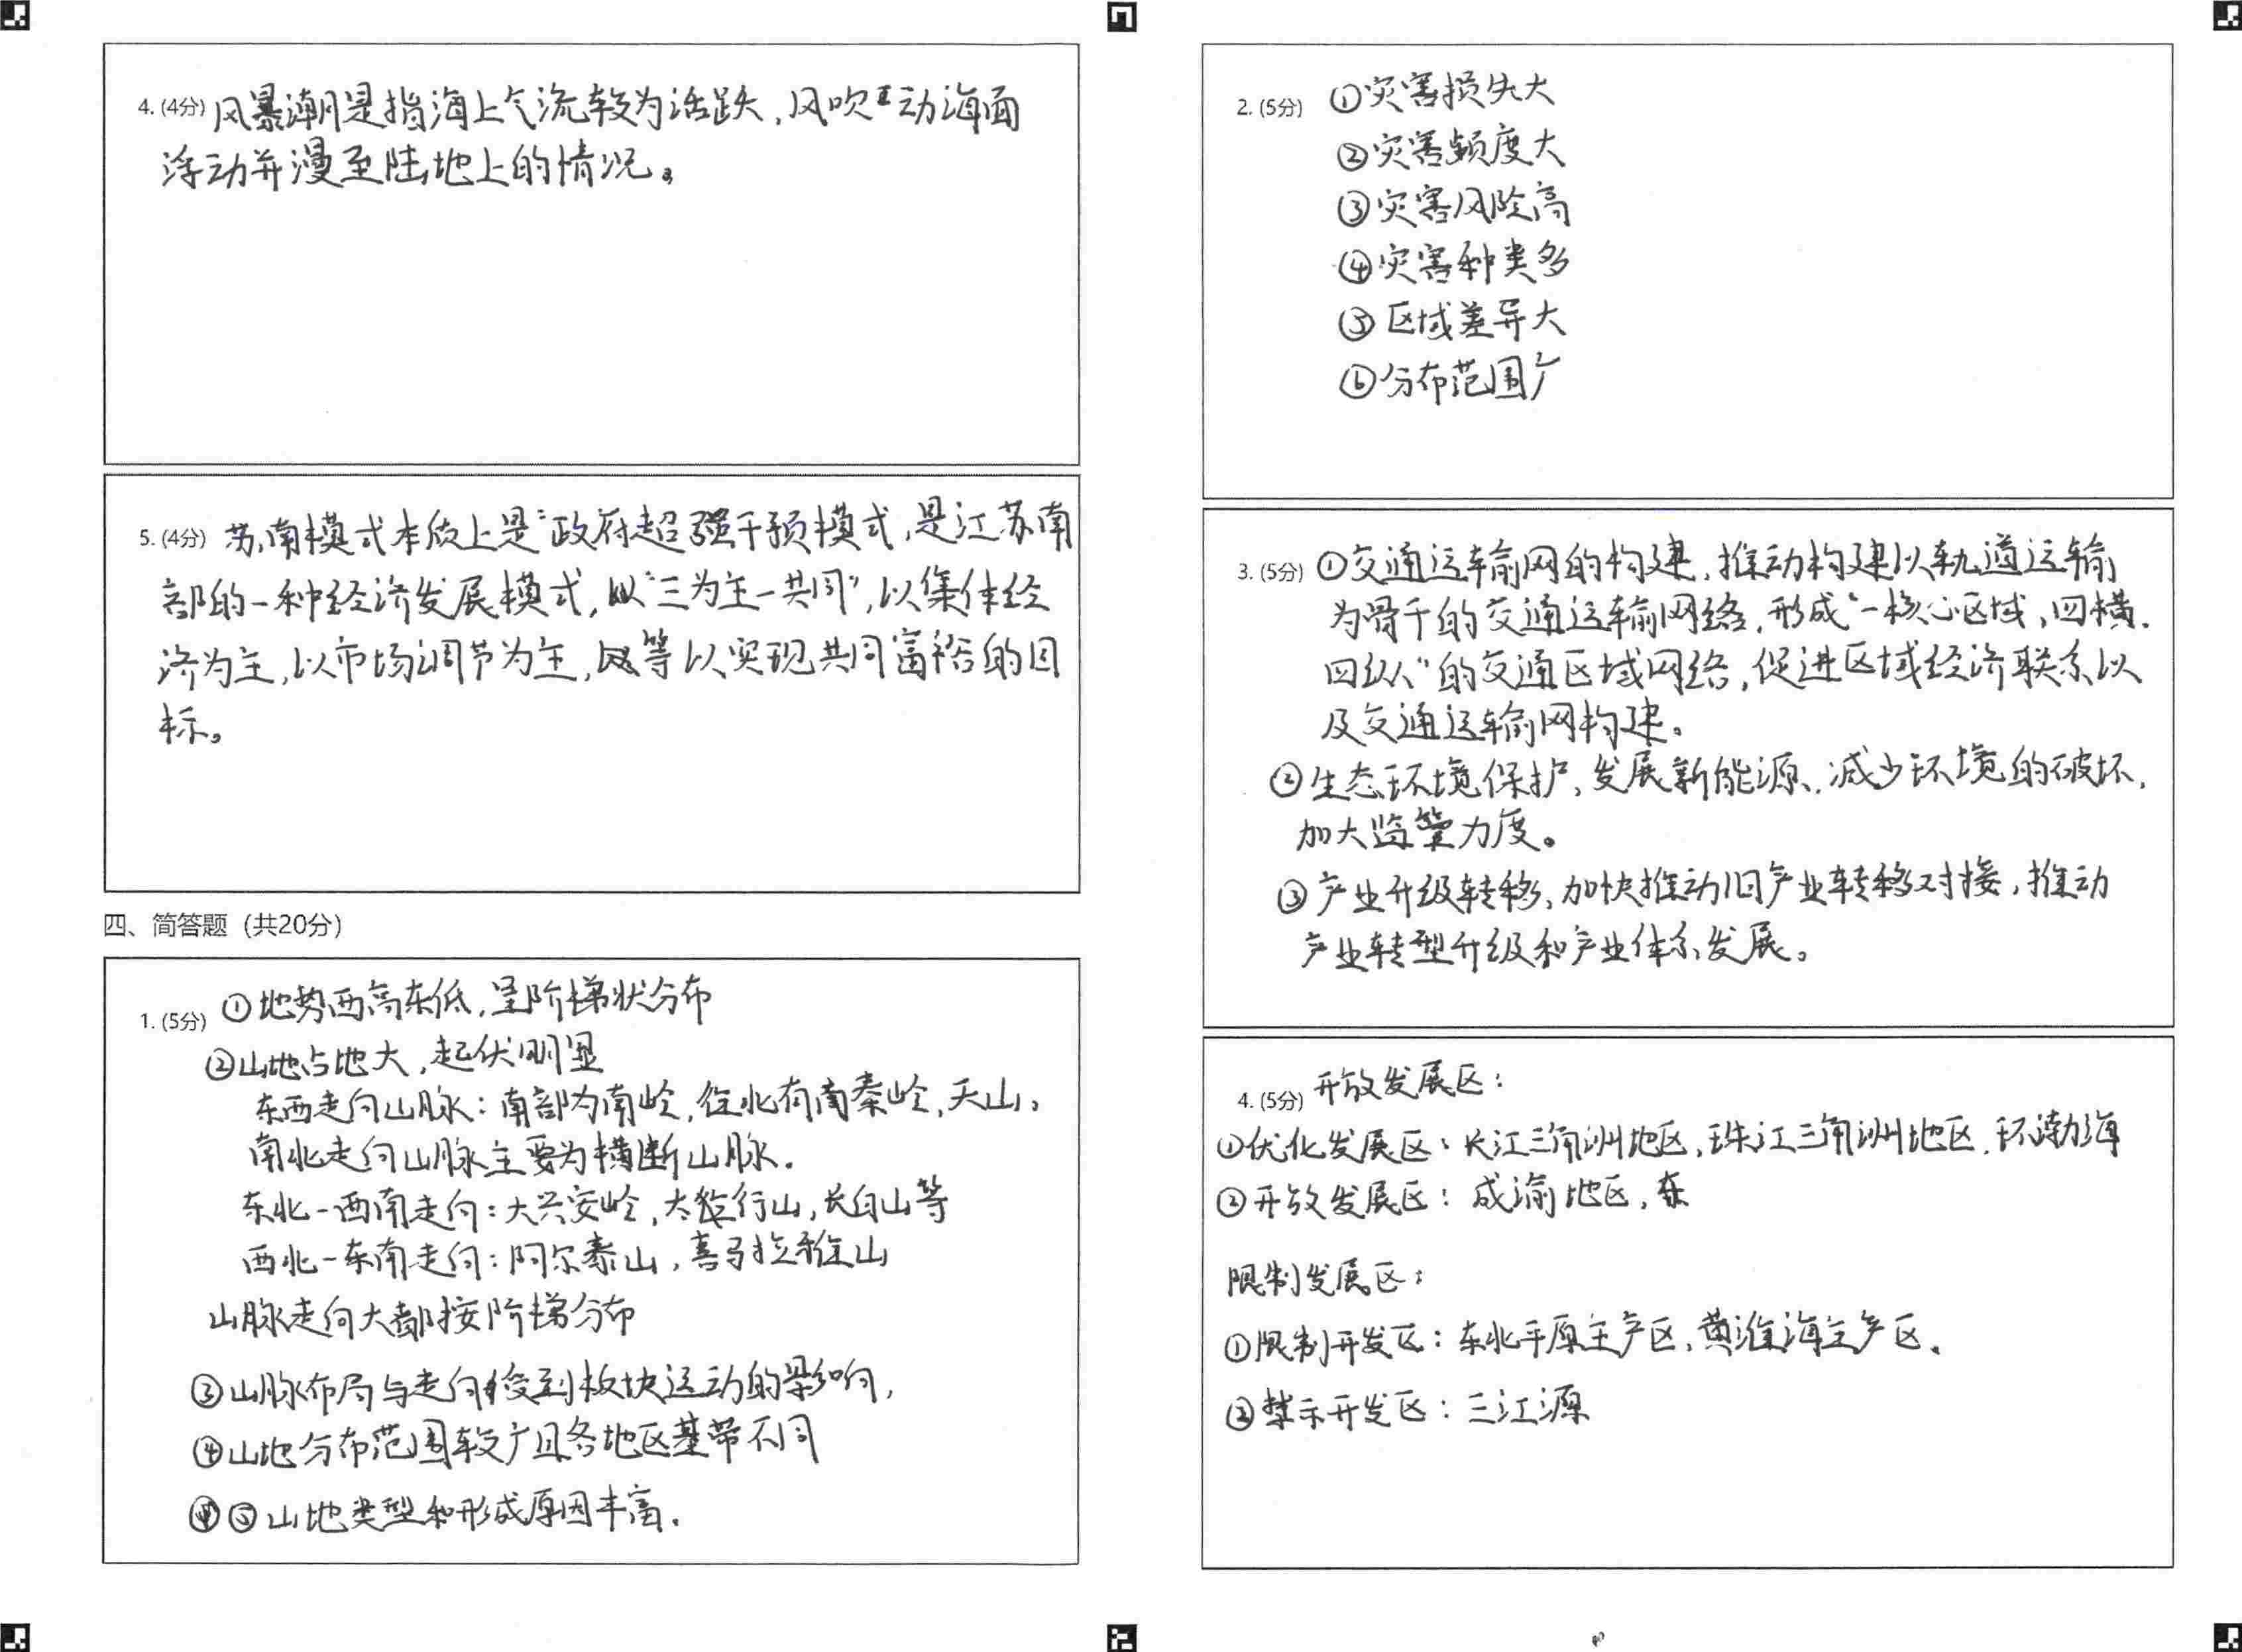 4. (4分) 风暴潮是指海上气流较为活跃，风吹动海面
浮动并漫至陆地上的情况。
5. (4分) 苏南模式本质上是“政府超强干预模式，是江苏南
部的一种经济发展模式，以“三为主一共同”，以集体经
济为主，以市场调节为主，等以实现共同富裕的目
标。
四、简答题（共20分）
1. (5分) ①地势西高东低，呈阶梯状分布
②山地占地大，起伏明显
东西走向山脉：南部为南岭，往北有秦岭，天山。
南北走向山脉主要为横断山脉。
东北-西南走向：大兴安岭，太行山，长白山等
西北-东南走向：阿尔泰山，喜马拉雅山
山脉走向大都按阶梯分布
③山脉布局与走向受到板块运动的影响，
④山地分布范围较广且各地区基带不同
⑤山地类型和形成原因丰富.
2. (5分) ①灾害损失大
②灾害频度大
③灾害风险高
④灾害种类多
⑤区域差异大
⑥分布范围广
3. (5分) ①交通运输网的构建，推动构建以轨道运输
为骨干的交通运输网络，形成“一核心区域、四横.
四纵“的交通区域网络，促进区域经济联系以
及交通运输网构建。
②生态环境保护，发展新能源，减少环境的破坏，
加大监管力度。
③产业升级转移，加快推动旧产业转移对接，推动
产业转型升级和产业体系发展。
4. (5分) 开放发展区：
①优化发展区：长江三角洲地区，珠江三角洲地区.环渤海
②开放发展区：成渝地区，东
限制发展区：
①限制开发区：东北平原主产区，黄淮海主产区。
②禁示开发区：三江源